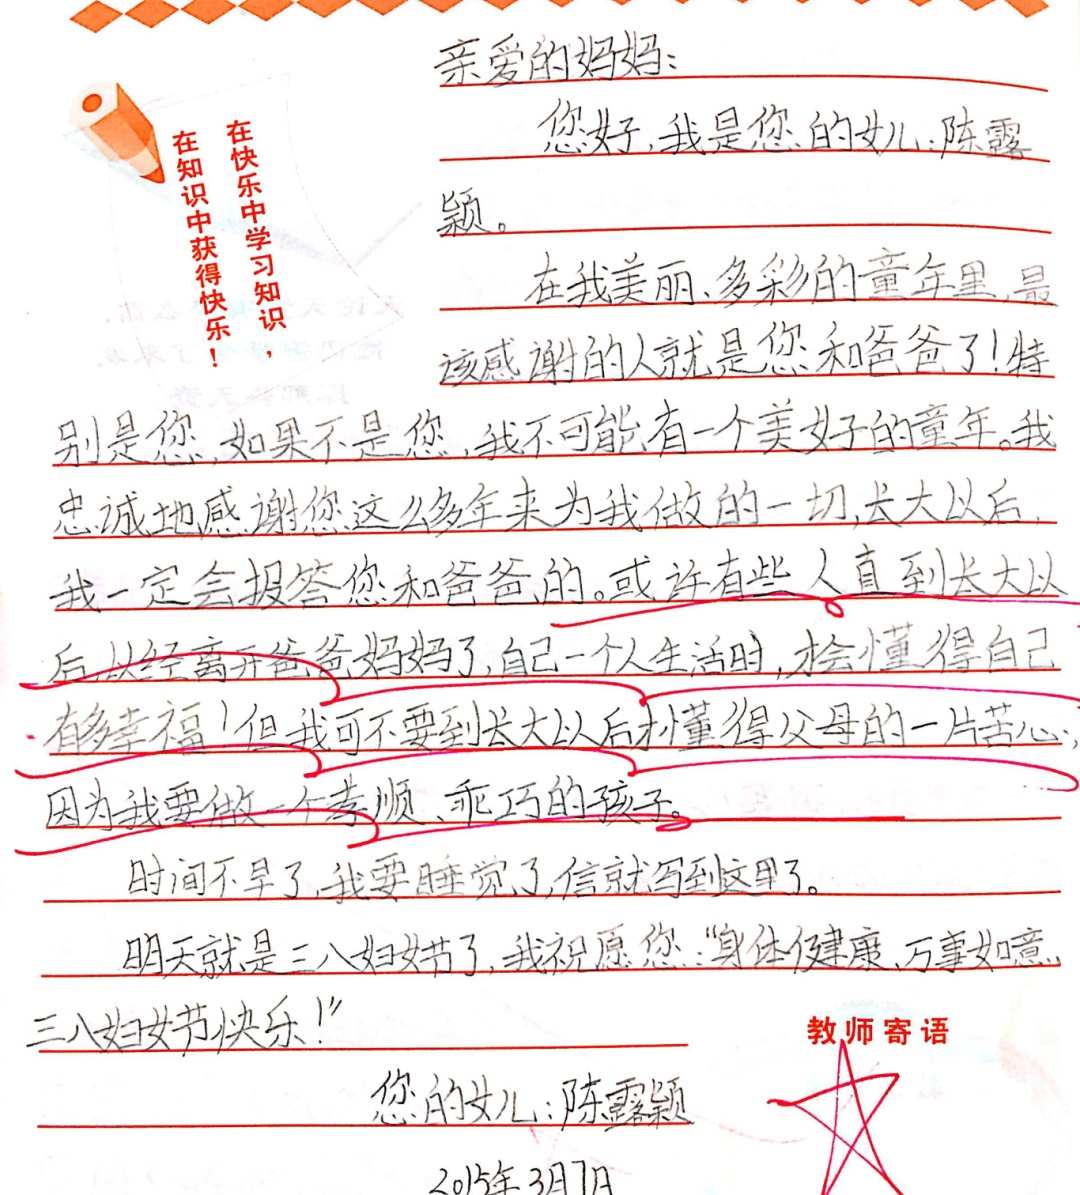 亲爱的妈妈:
您好,我是您的女儿:陈露
颖。
在我美丽、多彩的童年里,最
该感谢的人就是您和爸爸了!特
别是您,如果不是您,我不可能有一个美好的童年。我
忠诚地感谢您这么多年来为我做的一切,长大以后,
我一定会报答您和爸爸的。或许有些人直到长大以
后,以经离开爸爸妈妈了,自己一个人生活时,才会懂得自己
有多幸福!但我可不要到长大以后才懂得父母的一片苦心,
因为我要做一个孝顺、乖巧的孩子。
时间不早了,我要睡觉了,信就写到这里了。
明天就是三八妇女节了,我祝愿您:“身体健康、万事如意、
三八妇女节快乐!”
您的女儿:陈露颖
2015年3月7日
在快乐中学习知识,
在知识中获得快乐!
教师寄语